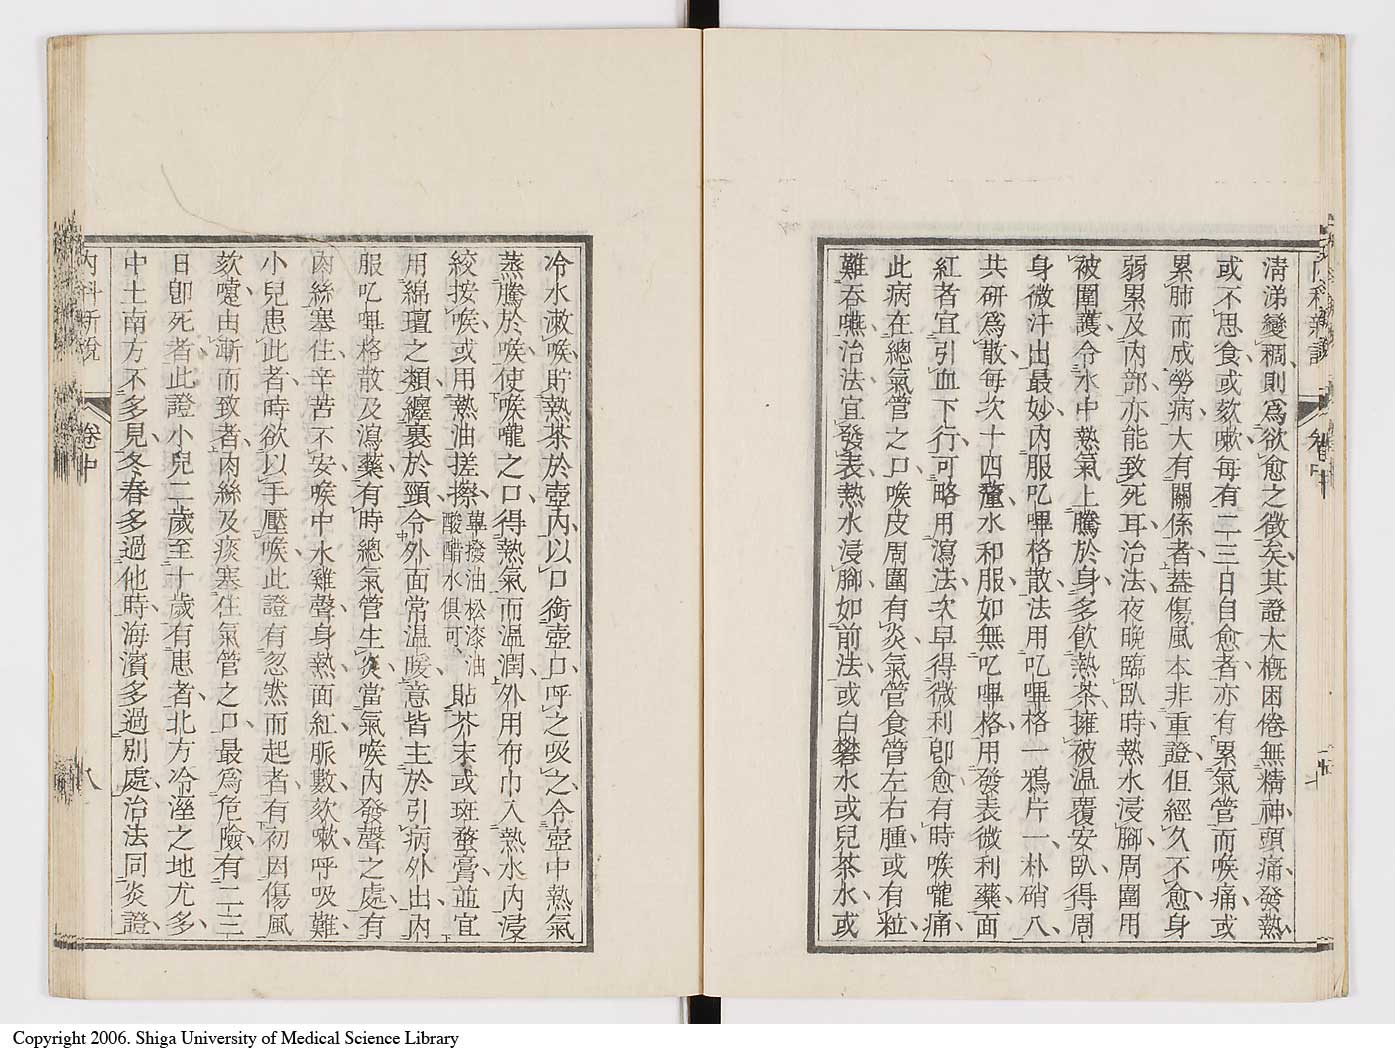 清涕變稠則爲欲愈之徵矣其證大槪困倦無精神頭痛發熱
或不思食或欬嗽每有二三日自愈者亦有累氣管而喉痛或
累肺而成勞病大有關係者蓋傷風本非重證但經久不愈身
弱累及內部亦能致死耳治法夜晚臨臥時熱水浸腳周圍用
被圍護令水中熱氣上騰於身多飮熱茶擁被温覆安臥得周
身微汗出最妙內服叱嗶格散法用叱嗶格一鴉片一朴硝八
共硏爲散每次十四釐水和服如無叱嗶格用發表微利藥面
紅者宜引血下行可略用瀉法次早得微利卽愈有時喉嚨痛
此病在總氣管之口喉皮周圍有炎氣管食管左右腫或有粒
難呑嚥治法宜發表熱水浸腳如前法或白礬水或兒茶水或
冷水漱喉貯熱茶於壺內以口銜壺口呼之吸之令壺中熱氣
蒸騰於喉使喉嚨之口得熱氣而温潤外用布巾入熱水內浸
絞按喉或用熱油搓擦蓽撥油松漆油酸醋水俱可貼芥末或斑蝥膏並宜
用綿氊之類纏裹於頸令外面常温暖意皆主於引病外出內
服叱嗶格散及瀉藥有時總氣管生炎當氣喉內發聲之處有
肉絲塞住辛苦不安喉中水雞聲身熱面紅脈數欬嗽呼吸難
小兒患此者時欲以手壓喉此證有忽然而起者有初因傷風
欬嚏由漸而致者肉絲及痰塞住氣管之口最爲危險有二三
日卽死者此證小兒二歲至十歲有患者北方冷溼之地尤多
中土南方不多見冬春多過他時海濱多過別處治法同炎證
內科新說
卷中
八
Copyright 2006. Shiga University of Medical Science Library